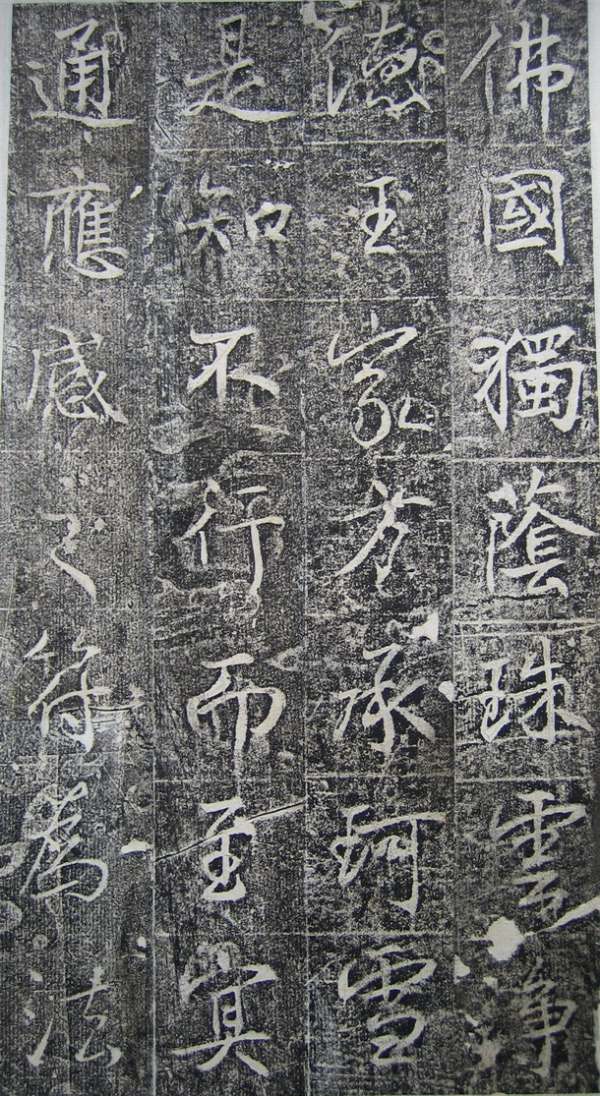 佛國獨蔭珠雲淨
德王家芬承珂雪
是知不行而至冥
通應感之符為法